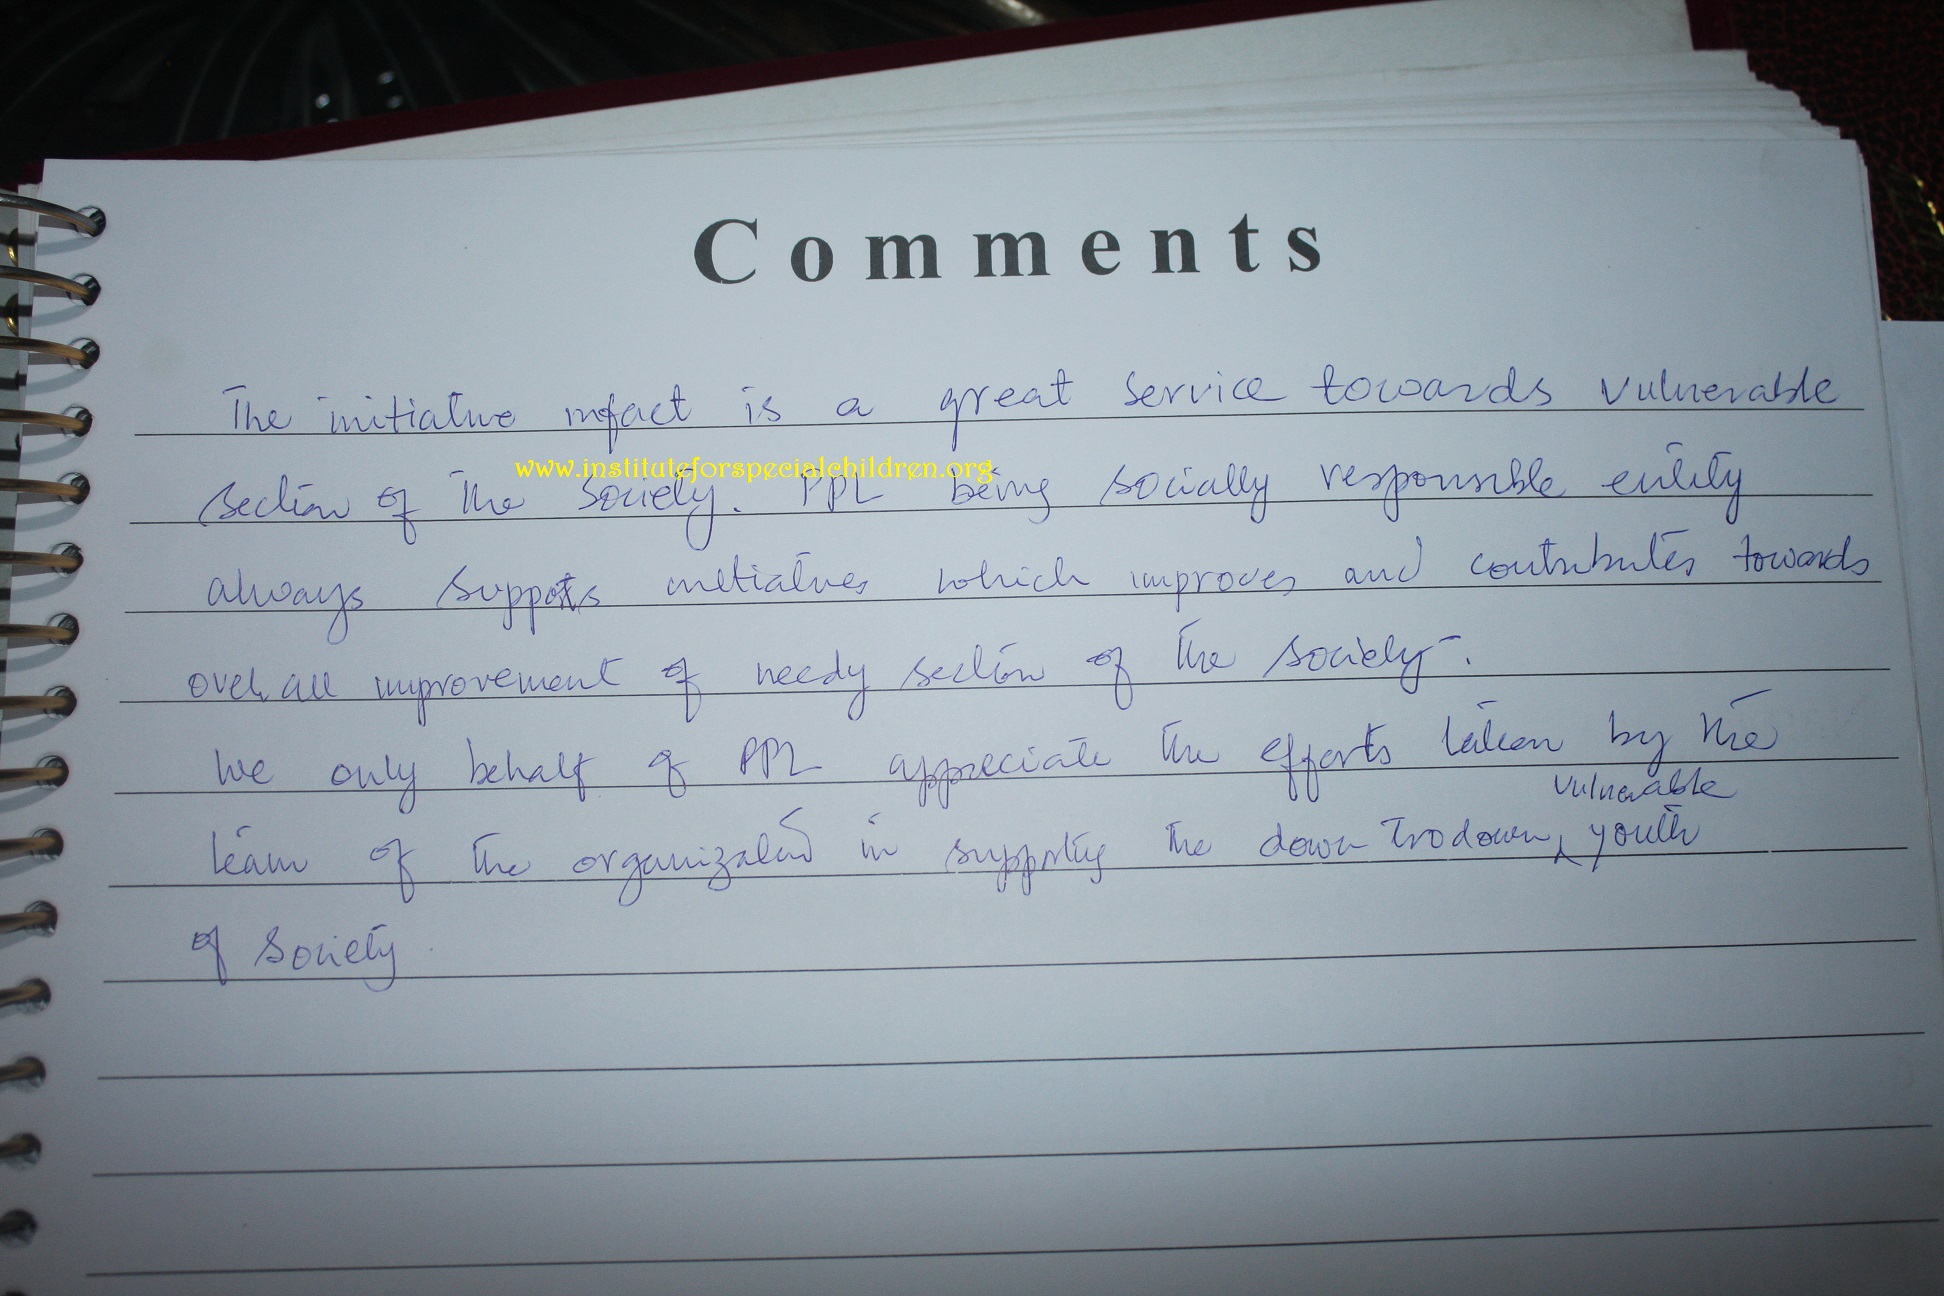 Comments
The initiative infact is a great service towards vulnerable
www.instituteforspecialchildren.org
section of the society. PPL being socially responsible entity
always supports initiatives which improves and contributes towards
over all improvement of needy section of the society.
We only behalf of PPL appreciate the efforts taken by the
vulnerable
team of the organization in supporting the down trodown, youth
of society.